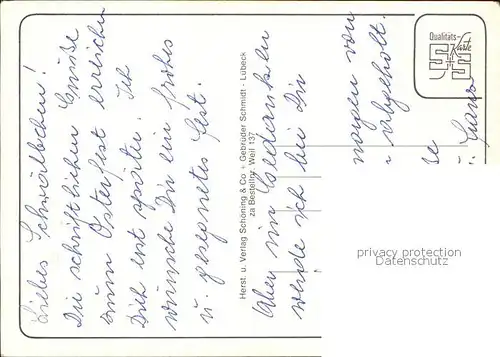 Liebes Schwälbchen!
Die schriftlichen Grüße
zum Osterfest erreichen
Dich erst später. Ich
wünsche Dir ein frohes
u. gesegnetes Fest.
Herst. u. Verlag Schöning & Co + Gebrüder Schmidt - Lübeck
za Bestellnr. Weil 137
Aber im Gedanken
werde ich bei Dir
morgen von
abgeholt.
Qualitäts-
Karte
privacy protection
Datenschutz